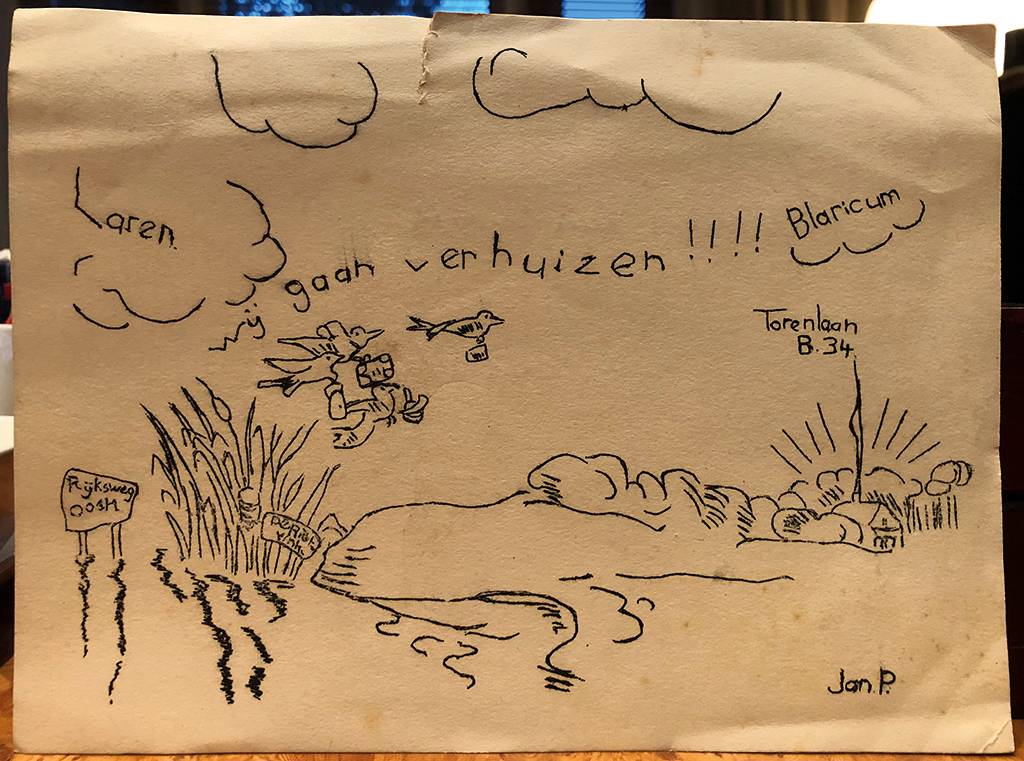 Laren.
Wij gaan verhuizen !!!!
Blaricum
Torenlaan
B.34.
Rijksweg
oost
Jan.P.